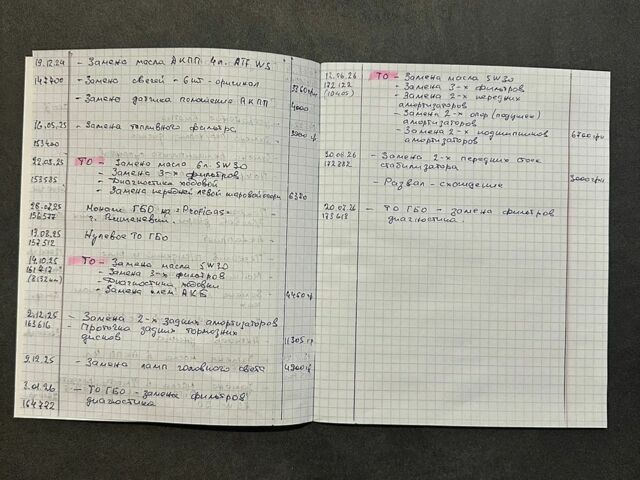 19.12.24 - Замена масла АКПП 4л. ATF WS
147400 - Замена свечей - 6 шт - оригинал 3260 грн
- Замена датчика положение АКПП 4000
16.05.25 - Замена топливного фильтра 3000 гр
153400
22.05.25 ТО - Замена масло 6л. 5W30
- Замена 3-х фильтров
153585 - Диагностика ходовой
- Замена передней левой шаровой опоры 6370
28.07.25 Монтаж ГБО на "Profigas"
156577 г.
13.08.25 Нулевое ТО ГБО
157512
14.10.25 ТО - Замена масла 5W30
161717 - Замена 3-х фильтров
(8132км) - Диагностика ходовки
- Замена клем АКБ 4450 гр
2.12.25 - Замена 2-х задних амортизаторов
163616 - Проточка задних тормозных
дисков 11305 гр
9.12.25 - Замена ламп головного света 4900 гр
2.01.26 - ТО ГБО - замена фильтров
164772 диагностика
12.06.26 ТО - Замена масла 5W30
172122 - Замена 3-х фильтров
(10405) - Замена 2-х передних
амортизаторов
- Замена 2-х опор (подушек)
амортизаторов
- Замена 2-х подшипников 6760 грн
амортизаторов
20.06.26 - Замена 2-х передних стоек
172882 стабилизатора
- Развал - схождение 3000 грн
20.07.26 - ТО ГБО - замена фильтров
173618 диагностика